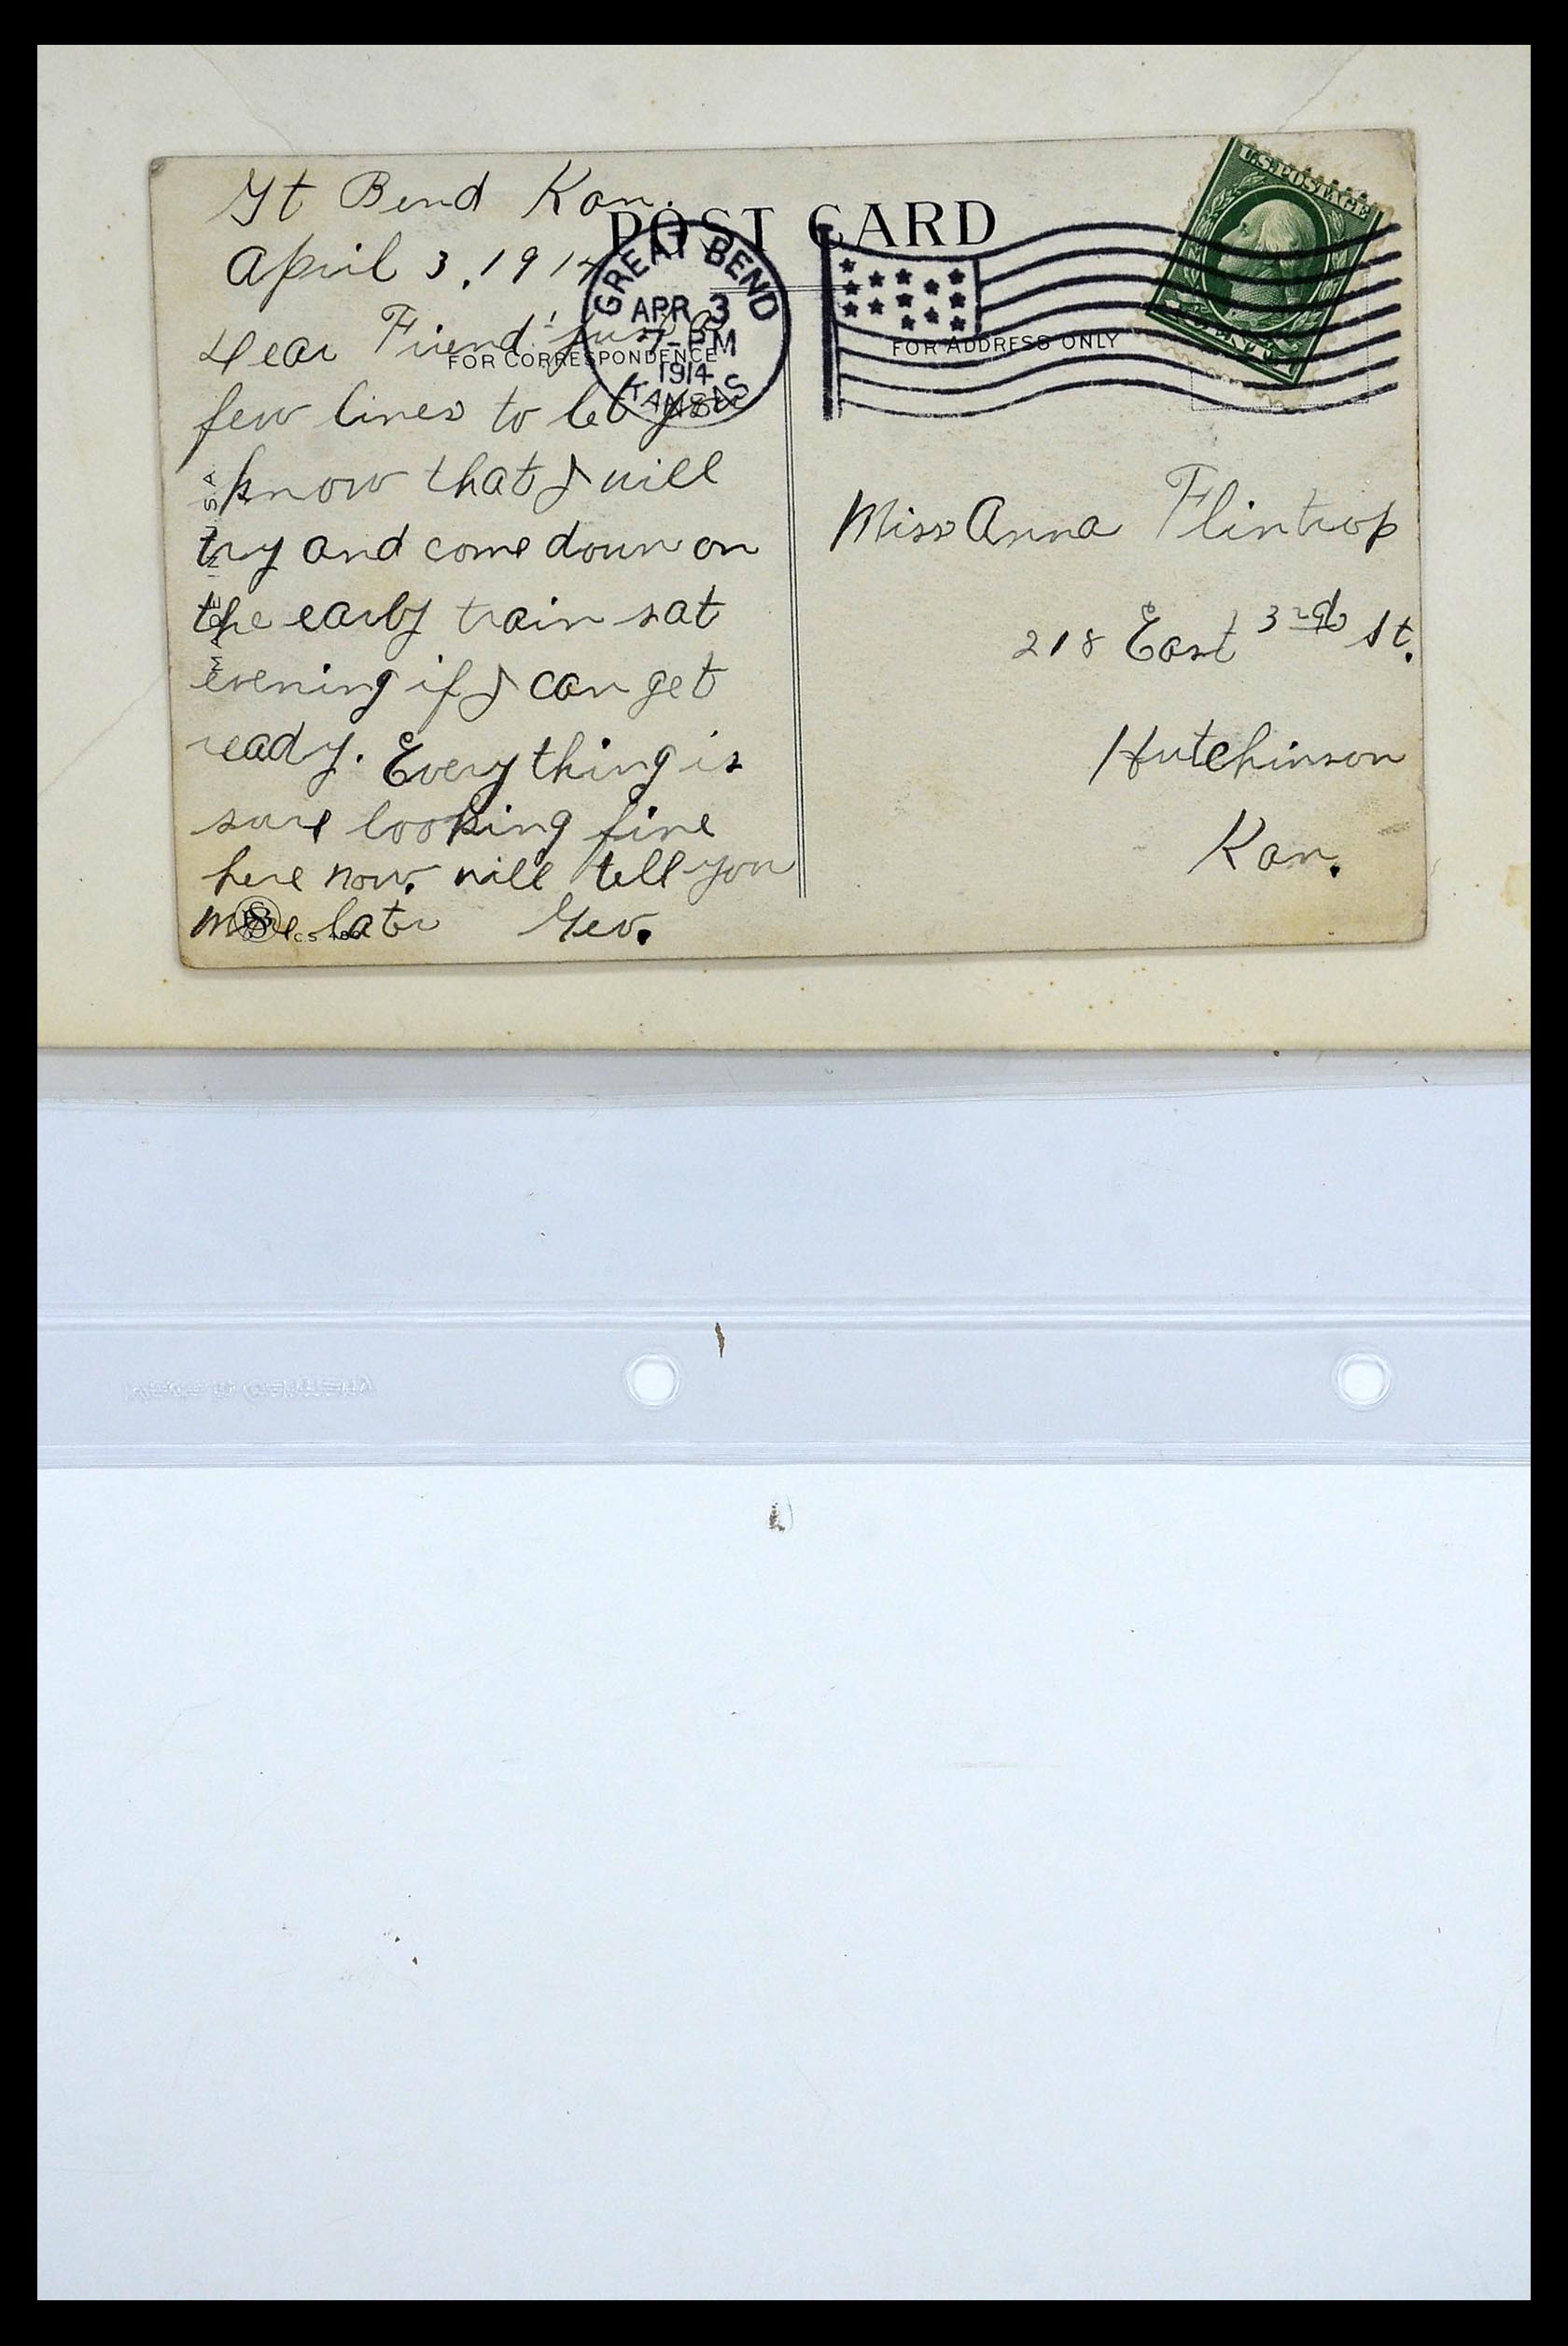 Gt Bend Kan.
April 3, 1914
POST CARD
GREAT BEND
APR 3
7-PM
1914
KANSAS
U.S. POSTAGE
FOR CORRESPONDENCE
FOR ADDRESS ONLY
Dear Friend: just a
few lines to let you
know that I will
try and come down on
the early train sat
evening if I can get
ready. Everything is
sure looking fine
here now. will tell you
more later Geo.
MADE IN USA
Miss Anna Flintrop
218 East 3rd St.
Hutchinson
Kan.